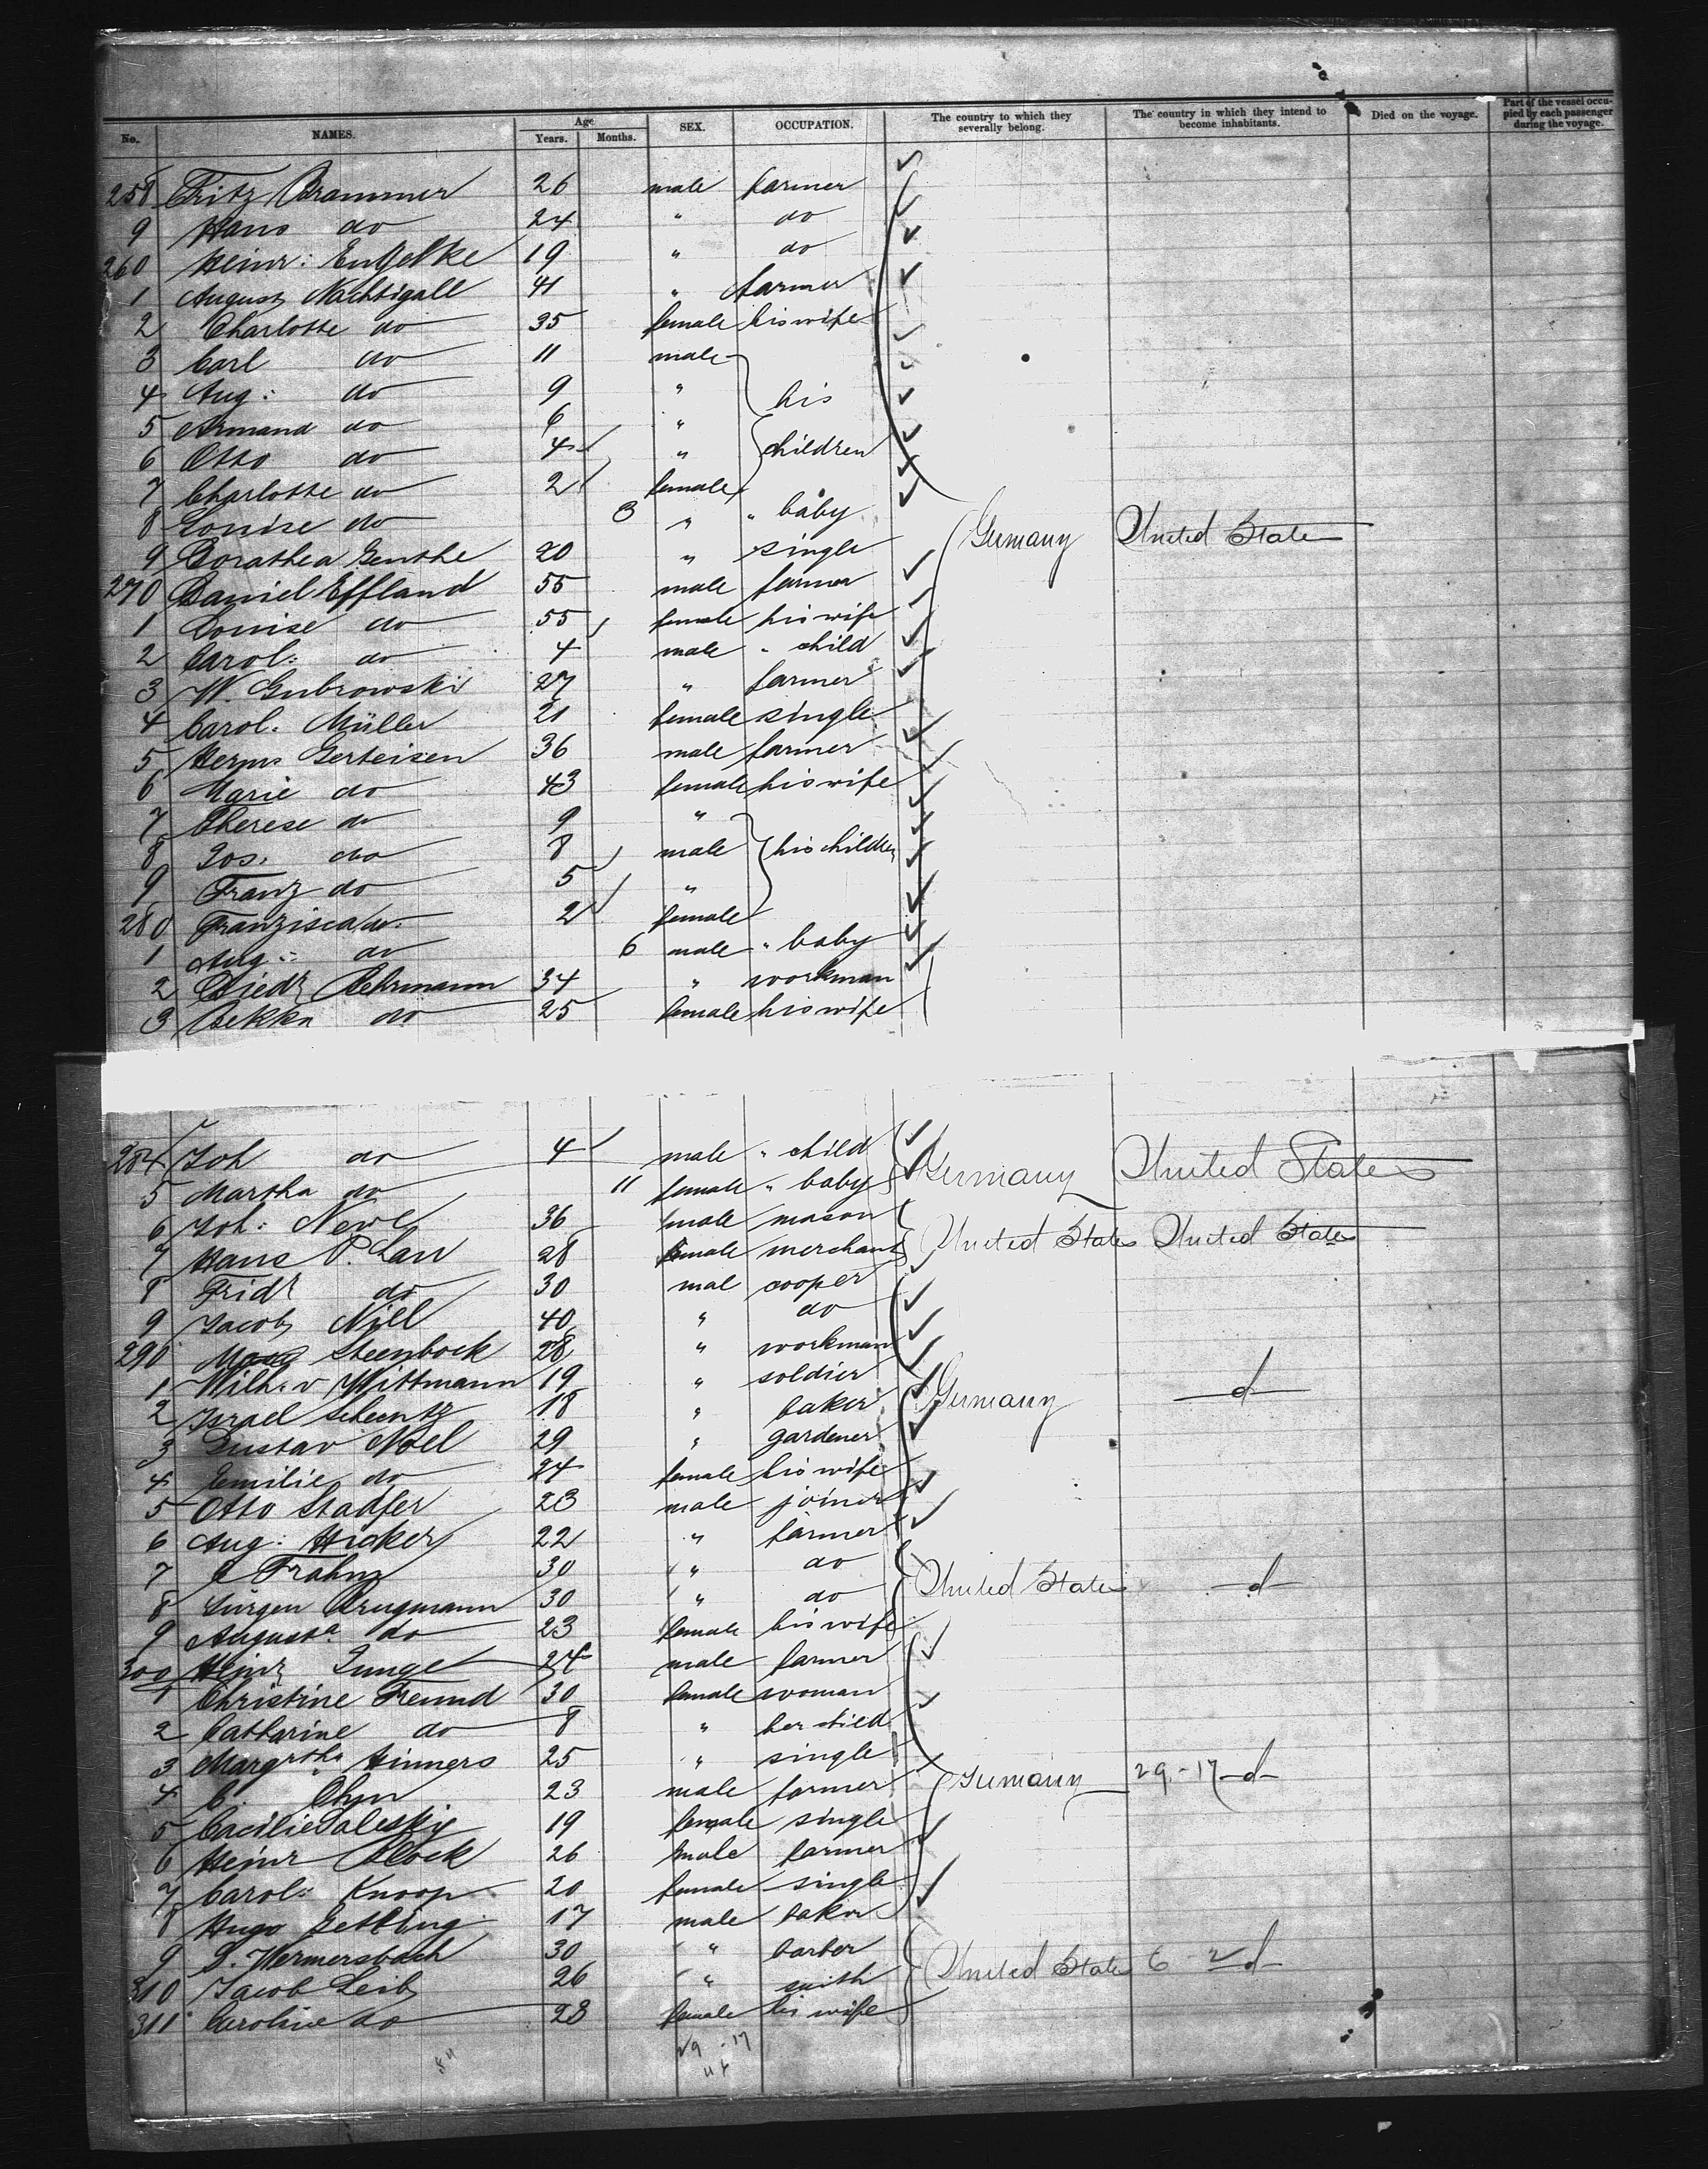 No. NAMES. Age Years. Months. SEX. OCCUPATION. The country to which they severally belong. The country in which they intend to become inhabitants. Died on the voyage. Part of the vessel occupied by each passenger during the voyage.
258 Fritz Brammer 26 male farmer
9 Hans do 24 " do
260 Heinr: Engelke 19 " do
1 August Nachtigall 41 " farmer
2 Charlotte do 35 female his wife
3 Carl do 11 male
4 Aug: do 9 " his
5 Armand do 6 "
6 Otto do 4 " children
7 Charlotte do 2 female
8 Louise do 3 " " baby
9 Dorathea Genthe 20 " single Germany United States
270 Daniel Effland 55 male farmer
1 Louise do 55 female his wife
2 Carol: do 4 male " child
3 W. Gubrowski 27 " farmer
4 Carol: Müller 21 female single
5 Herm Gerteisen 36 male farmer
6 Marie do 43 female his wife
7 Therese do 9 "
8 Jos. do 8 male his children
9 Franz do 5 "
280 Franzisca do 2 female
1 Aug: do 6 male " baby
2 Diedr Behrmann 34 " workman
3 Bekka do 25 female his wife
284 Joh do 4 male " child
5 Martha do 11 female " baby Germany United States
6 Joh: Neve 36 male mason
7 Hans P. Lau 28 male merchant United States United States
8 Fridr do 30 mal cooper
9 Jacob Nill 40 " do
290 Steenbock 28 " workman
1 Wilh. v Wittmann 19 " soldier
2 Israel 18 " baker Germany -d-
3 Gustav Noel 29 " gardener
4 Emilie do 24 female his wife
5 Otto Stadfer 23 male joiner
6 Aug: Hicker 22 " farmer
7 Frahm 30 " do
8 Jürgen Brugmann 30 " do United States -d-
9 Augusta do 23 female his wife
300 Heinr Junge 24 male farmer
1 Christine Freund 30 female woman
2 Catharine do 8 " her child
3 Margretha Hinners 25 " single
4 C. 23 male farmer Germany 29-17 -d-
5 Cacilie Salesky 19 female single
6 Heinr Block 26 male farmer
7 Carol: Knoop 20 female single
8 Hugo 17 male baker
9 S. Wermersbach 30 " barber
310 Jacob Leib 26 " smith United States 6 2 d
311 Caroline do 28 female his wife
29-17